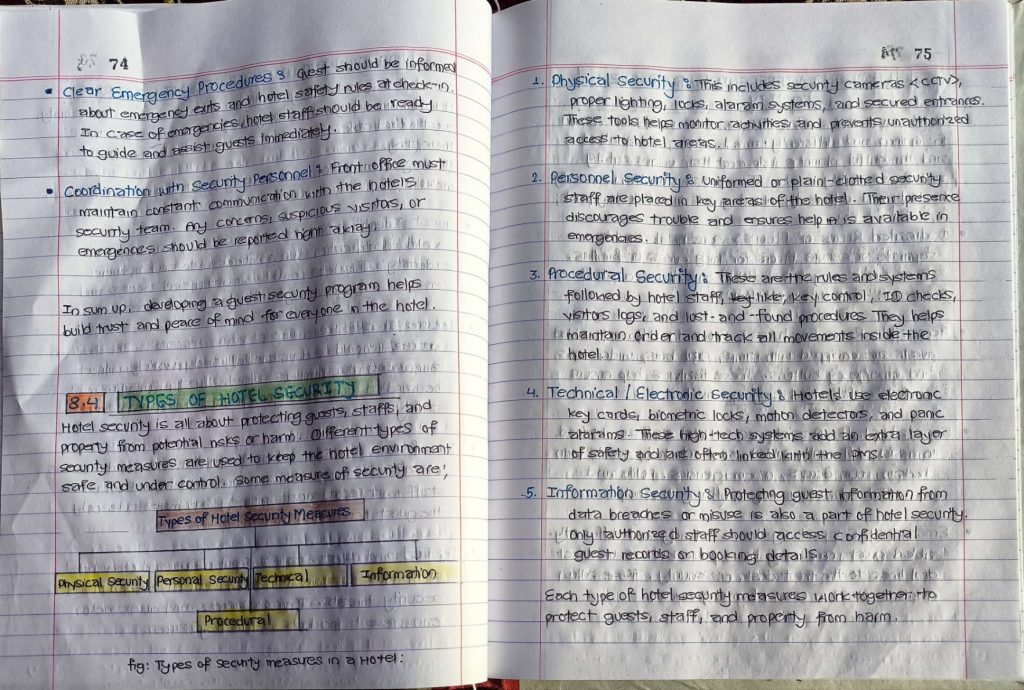 74
• Clear Emergency Procedures : Guest should be informed
about emergency exits and hotel safety rules at check-in.
In case of emergencies, hotel staff should be ready
to guide and assist guests immediately.
• Coordination with Security Personnel : Front office must
maintain constant communication with the hotels
security team. Any concerns, suspicious visitors, or
emergencies should be reported right away.
In sum up, developing a guest security program helps
build trust and peace of mind for everyone in the hotel.
8.4 TYPES OF HOTEL SECURITY
Hotel security is all about protecting guests, staffs, and
property from potential risks or harm. Different types of
security measures are used to keep the hotel environment
safe, and under control. Some measure of security are;
Types of Hotel Security Measures
Physical Security Personal Security Technical Information
Procedural
fig: Types of security measures in a Hotel:
75
1. Physical Security : This includes security cameras <CCTV>,
proper lighting, locks, alaram systems, and secured entrances.
These tools helps monitor activities and prevents unauthorized
access to hotel areas.
2. Personnel Security : Uniformed or plain-clothed security
staff are placed in key areas of the hotel. Their presence
discourages trouble and ensures help is available in
emergencies.
3. Procedural Security : These are the rules and systems
followed by hotel staff, like, key control, ID checks,
visitors logs, and lost-and-found procedures They helps
maintain order and track all movements inside the
hotel.
4. Technical / Electronic Security : Hotels use electronic
key cards, biometric locks, motion detectors, and panic
alarams. These high-tech systems add an extra layer
of safety and are often linked with the PMS.
5. Information Security : Protecting guest information from
data breaches or misuse is also a part of hotel security.
Only authorized staff should access confidential
guest records on booking details.
Each type of hotel security measures work together to
protect guests, staff, and property from harm.